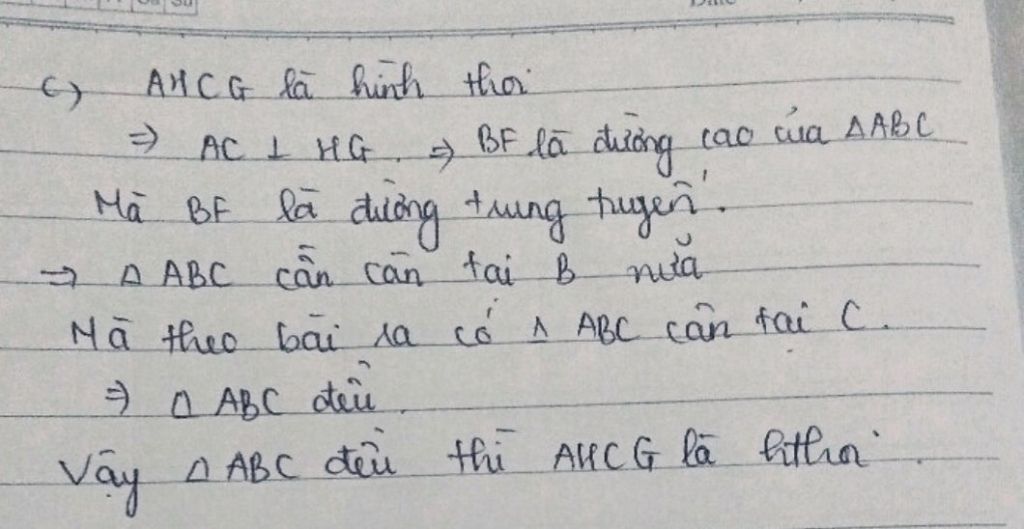 c) AHCG là hình thoi
⇒ AC ⊥ HG. ⇒ BF là đường cao của △ABC
Mà BF là đường trung tuyến.
⇒ △ ABC cần cân tại B nữa
Mà theo bài ra có △ ABC cân tại C.
⇒ △ ABC đều.
Vậy △ ABC đều thì AHCG là hthoi.